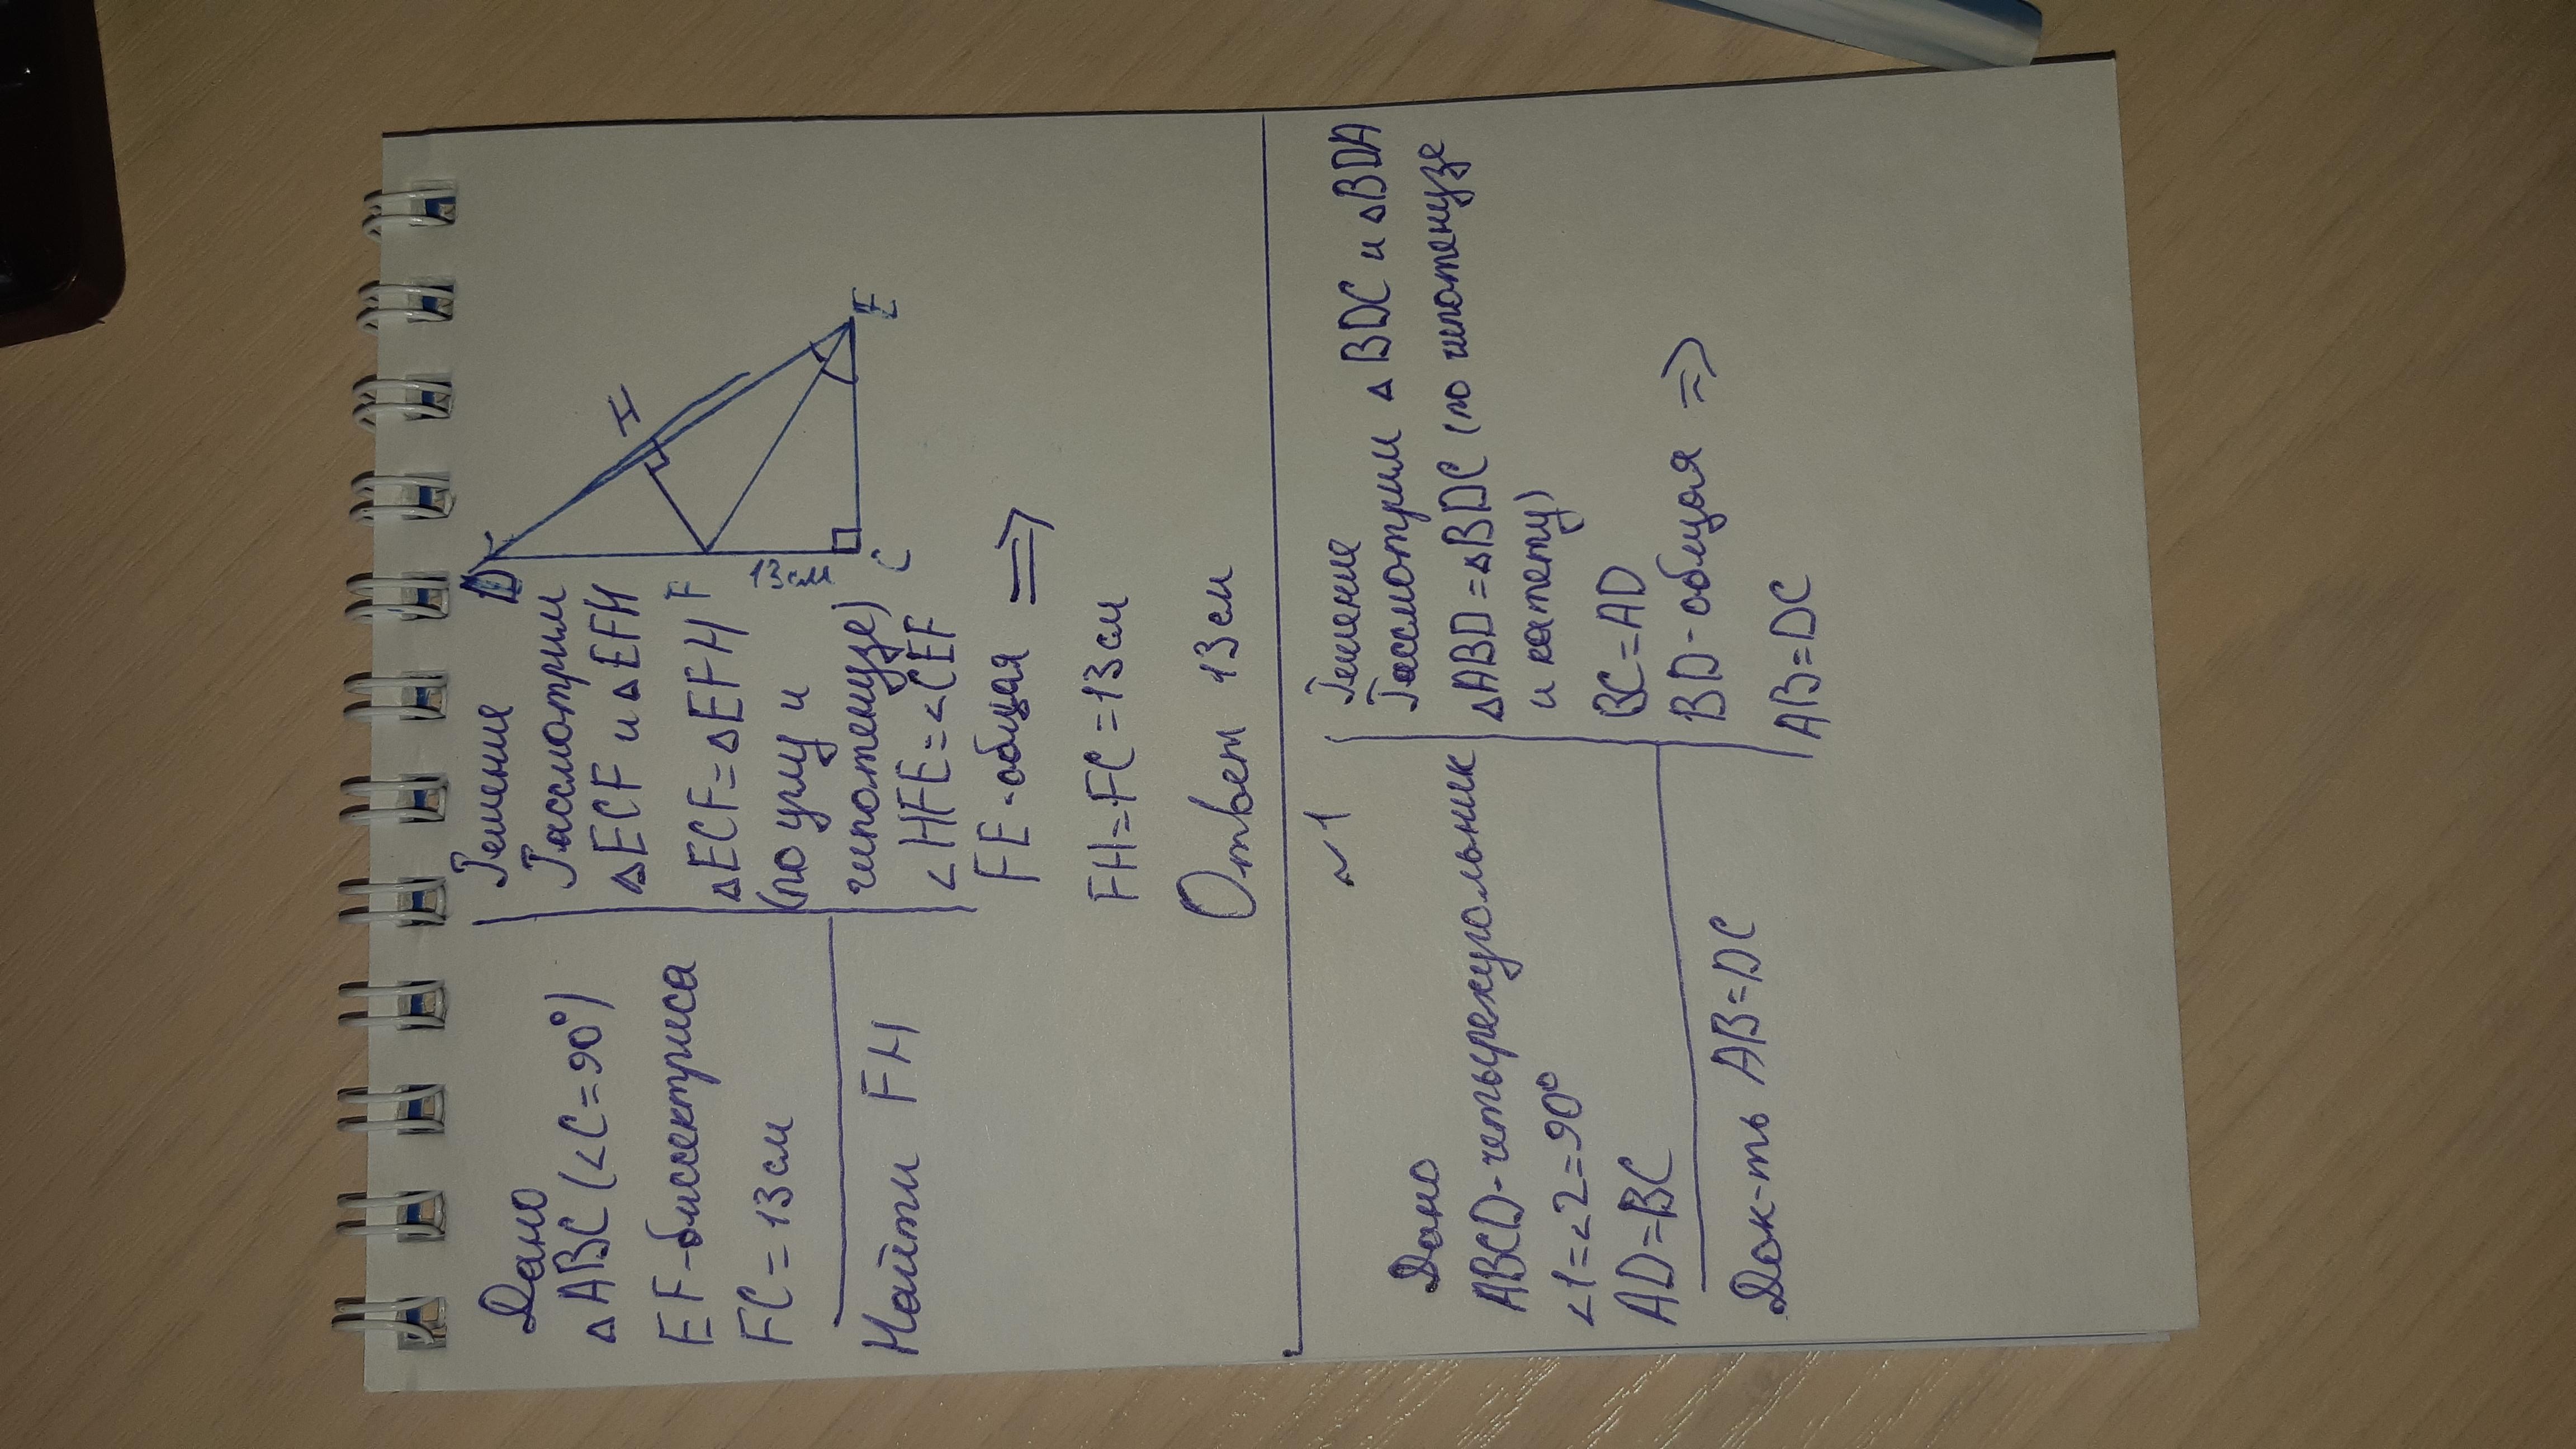 Дано
△ABC (∠C=90°)
EF-биссектриса
FC=13см
Найти FH
Решение
Рассмотрим
△ECF и △EFH
△ECF=△EFH
(по углу и
гипотенузе)
∠HFE=∠CEF
FE-общая ⟹
FH=FC=13см
Ответ 13см
D
H
F
13см
C
E
~1
Дано
ABCD-четырекугольник
∠1=∠2=90°
AD=BC
Док-ть AB=DC
Решение
Рассмотрим △BDC и △BDA
△ABD=△BDC (по гипотенузе
и катету)
BC=AD
BD-общая ⇒
AB=DC